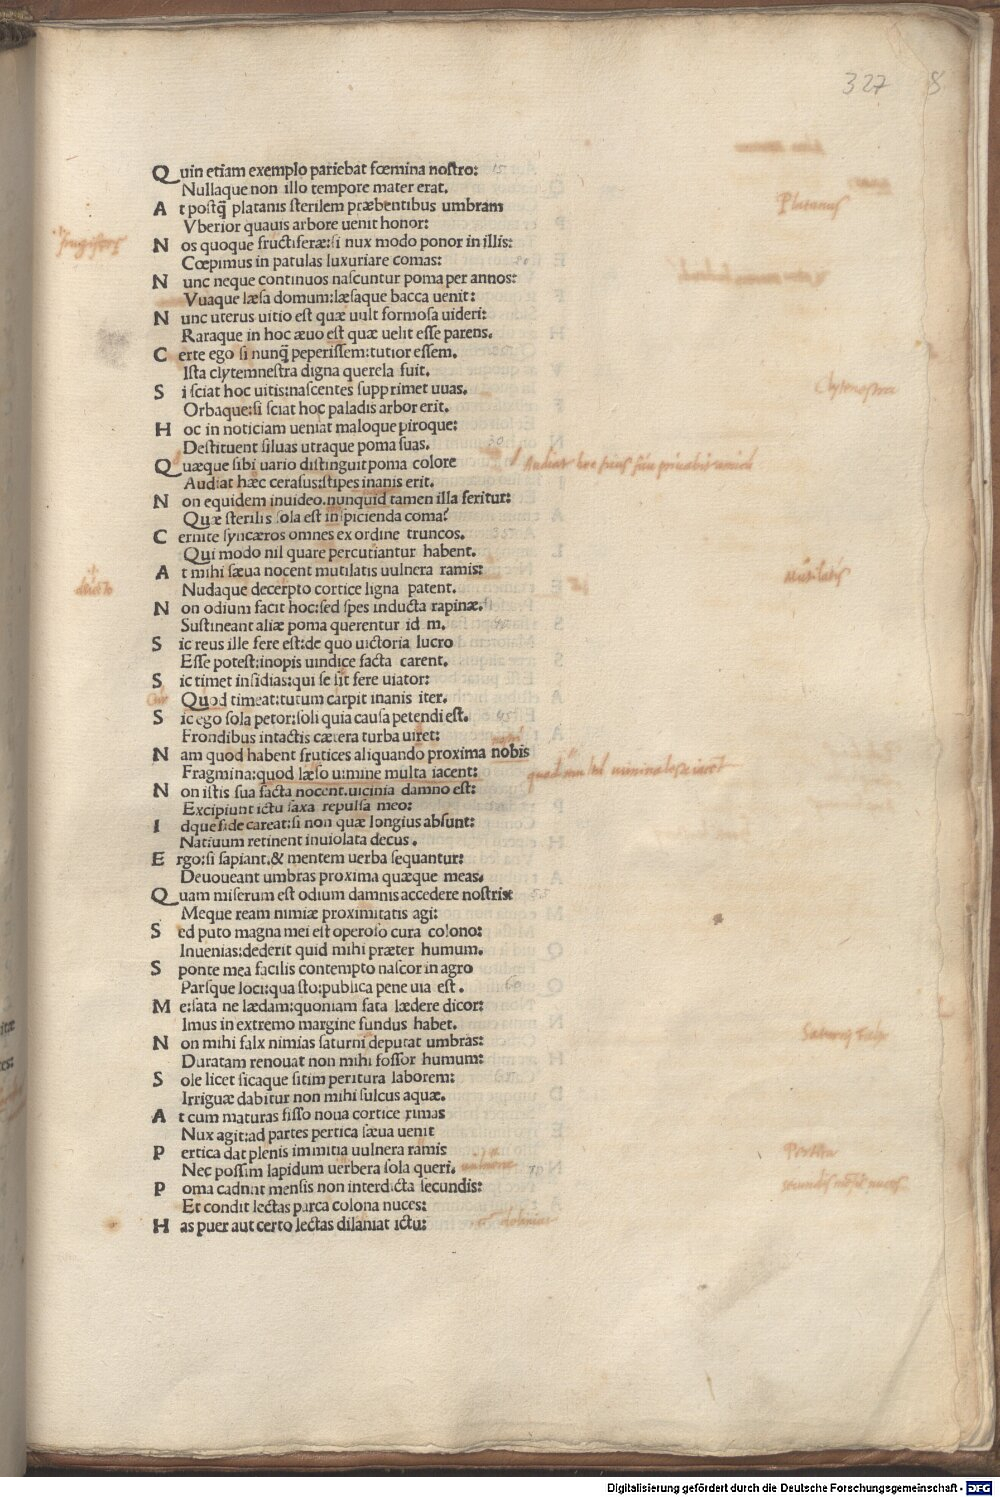 327 8
Quin etiam exemplo pariebat fœmina nostro:
Nullaque non illo tempore mater erat.
At postq̄ platanis sterilem præbentibus umbram
Vberior quauis arbore uenit honor:
Platanus
Nos quoque fructiferæ:si nux modo ponor in illis:
Cœpimus in patulas luxuriare comas:
Nunc neque continuos nascuntur poma per annos:
Vuaque læsa domum:læsaque bacca uenit:
Nunc uterus uitio est quæ uult formosa uideri:
Raraque in hoc æuo est quæ uelit esse parens.
Certe ego si nunq̄ peperissem:tutior essem.
Ista clytemnestra digna querela fuit.
Clytemestra
Si sciat hoc uitis:nascentes supprimet uuas.
Orbaque:si sciat hoc paladis arbor erit.
Hoc in noticiam ueniat maloque piroque:
Destituent siluas utraque poma suas. 30
Quæque sibi uario distinguit poma colore
Audiat hæc cerasus:stipes inanis erit.
Non equidem inuideo.nunquid tamen illa feritur:
Quæ sterilis sola est inspicienda coma?
Cernite syncæros omnes ex ordine truncos.
Qui modo nil quare percutiantur habent.
At mihi sæua nocent mutilatis uulnera ramis:
Mutilatis
Nudaque decerpto cortice ligna patent.
Non odium facit hoc:sed spes inducta rapinæ.
Sustineant aliæ poma querentur id m.
Sic reus ille fere est:de quo uictoria lucro
Esse potest:inopis uindice facta carent.
Sic timet insidias:qui se sit fere uiator:
Quod timeat:tutum carpit inanis iter.
Sic ego sola petor:soli quia causa petendi est.
Frondibus intactis cætera turba uiret:
Nam quod habent frutices aliquando proxima nobis
Fragmina:quod læso uimine multa iacent:
Non istis sua facta nocent.uicinia damno est:
Excipiunt ictu saxa repulsa meo:
Idque fide careat:si non quæ longius absunt:
Natiuum retinent inuiolata decus.
Ergo:si sapiant.& mentem uerba sequantur:
Deuoueant umbras proxima quæque meas.
Quam miserum est odium damnis accedere nostris
Meque ream nimiæ proximitatis agi:
Sed puto magna mei est operoso cura colono:
Inuenias:dederit quid mihi præter humum.
Sponte mea facilis contempto nascor in agro
Parsque loci:qua sto:publica pene uia est. 60
Me:sata ne lædam:quoniam sata lædere dicor:
Imus in extremo margine fundus habet.
Non mihi falx nimias saturni deputat umbras:
Saturnij Falx
Duratam renouat non mihi fossor humum:
Sole licet sicaque sitim peritura laborem:
Irriguæ dabitur non mihi sulcus aquæ.
At cum maturas fisso noua cortice rimas
Nux agit:ad partes pertica sæua uenit
Pertica
Pertica dat plenis immitia uulnera ramis
Nec possim lapidum uerbera sola queri. 70
Poma cadunt mensis non interdicta secundis:
Et condit lectas parca colona nuces:
Has puer aut certo lectas dilaniat ictu:
Digitalisierung gefördert durch die Deutsche Forschungsgemeinschaft - DFG